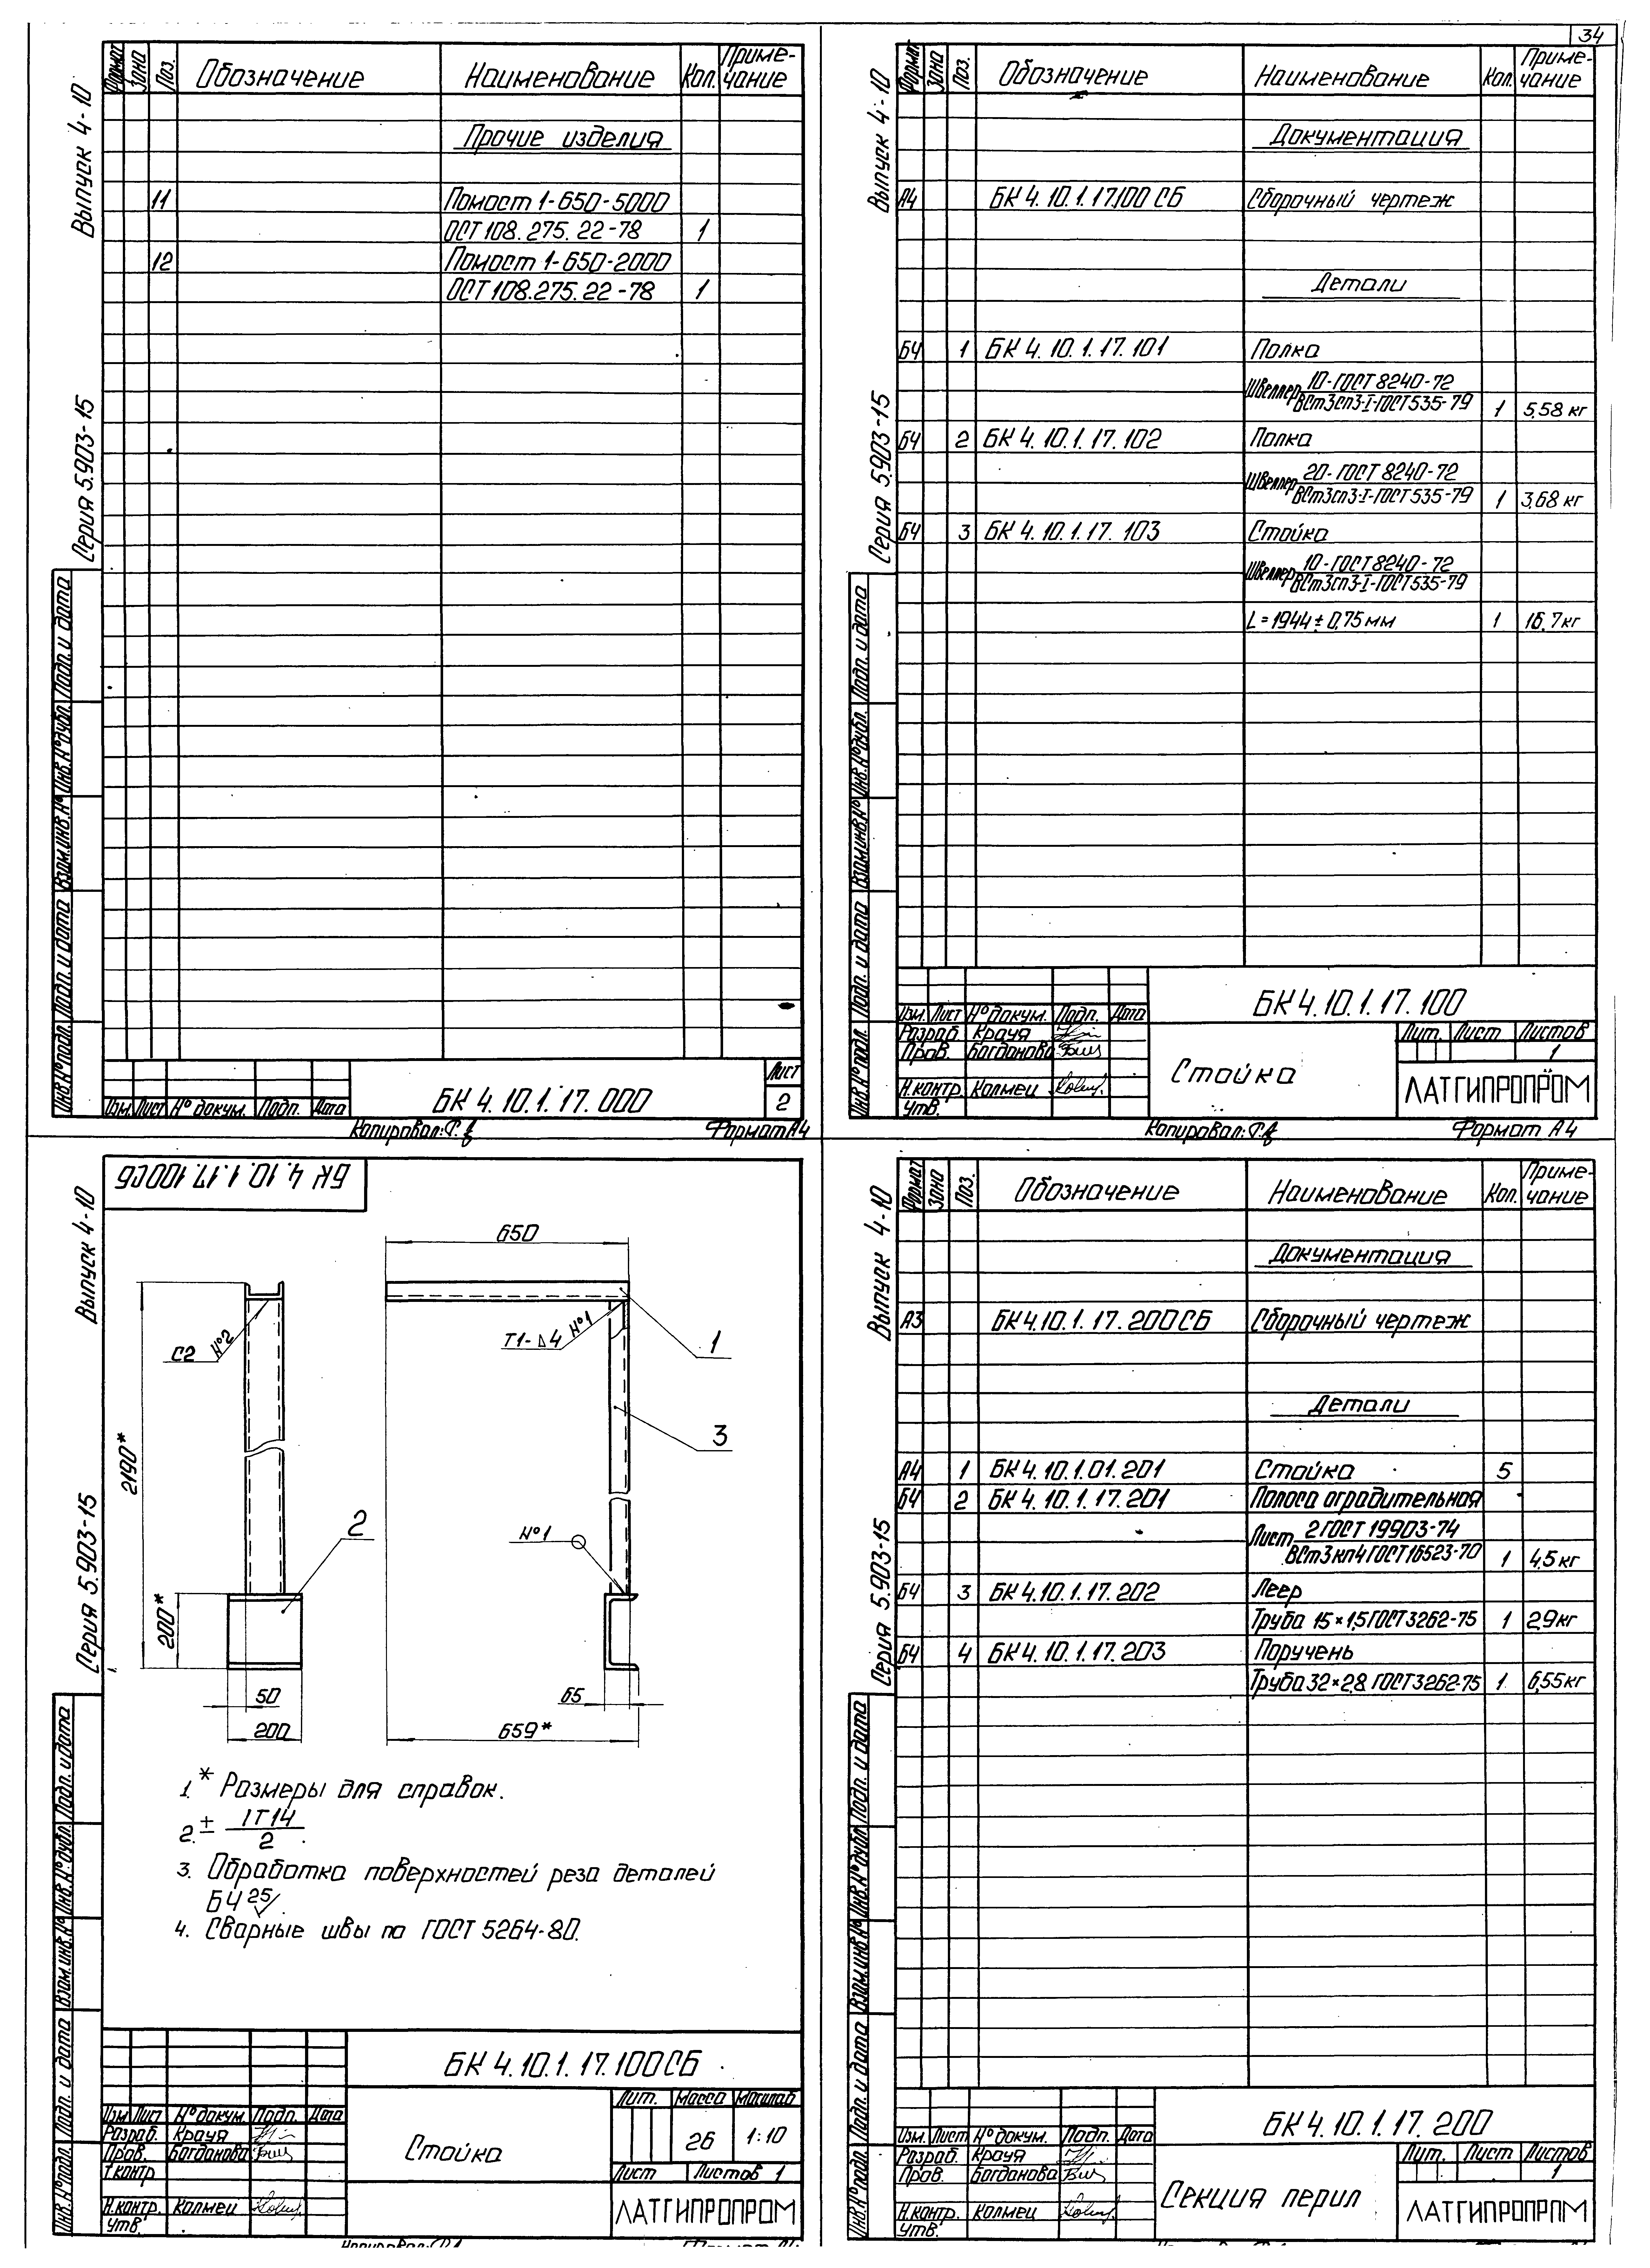 34
Выпуск 4-10
Серия 5.903-15
Формат Зона Поз. Обозначение Наименование Кол. Приме-чание
Прочие изделия
11 Помост 1-650-5000
ОСТ 108.275.22-78 1
12 Помост 1-650-2000
ОСТ 108.275.22-78 1
Инв.№подл. Подп. и дата Взам.инв.№ Инв.№дубл. Подп. и дата
Изм. Лист № докум. Подп. Дата
БК 4.10.1.17.000
Лист
2
Копировал:
Формат А4
Выпуск 4-10
Серия 5.903-15
Формат Зона Поз. Обозначение Наименование Кол. Приме-чание
Документация
А4 БК 4.10.1.17.100 СБ Сборочный чертеж
Детали
БЧ 1 БК 4.10.1.17.101 Полка
Швеллер 10-ГОСТ 8240-72
ВСт3сп3-I-ГОСТ 535-79 1 5,58 кг
БЧ 2 БК 4.10.1.17.102 Полка
Швеллер 20-ГОСТ 8240-72
ВСт3сп3-I-ГОСТ 535-79 1 3,68 кг
БЧ 3 БК 4.10.1.17.103 Стойка
Швеллер 10-ГОСТ 8240-72
ВСт3сп3-I-ГОСТ 535-79
L=1944±0,75 мм 1 16,7 кг
Инв.№подл. Подп. и дата Взам.инв.№ Инв.№дубл. Подп. и дата
БК 4.10.1.17.100
Изм. Лист № докум. Подп. Дата
Разраб. Крауя
Пров. Богданова
Н.контр. Колмец
Утв.
Стойка
Лит. Лист Листов
1
ЛАТГИПРОПРОМ
Копировал:
Формат А4
БК 4.10.1.17.100СБ
Выпуск 4-10
Серия 5.903-15
650
С2 №2
Т1-△4 №1
1
3
2190*
2
№1
200*
50
200
65
659*
1. * Размеры для справок.
2. ± IT14
2.
3. Обработка поверхностей реза деталей
БЧ 25
4. Сварные швы по ГОСТ 5264-80.
Инв.№подл. Подп. и дата Взам.инв.№ Инв.№дубл. Подп. и дата
БК 4.10.1.17.100СБ
Изм. Лист № докум. Подп. Дата
Разраб. Крауя
Пров. Богданова
Т.контр
Н.контр. Колмец
Утв.
Стойка
Лит. Масса Масштаб
26 1:10
Лист Листов 1
ЛАТГИПРОПРОМ
Выпуск 4-10
Серия 5.903-15
Формат Зона Поз. Обозначение Наименование Кол. Приме-чание
Документация
А3 БК 4.10.1.17.200СБ Сборочный чертеж
Детали
А4 1 БК 4.10.1.01.201 Стойка 5
БЧ 2 БК 4.10.1.17.201 Полоса оградительная
Лист 2 ГОСТ 19903-74
ВСт3кп4 ГОСТ 16523-70 1 4,5 кг
БЧ 3 БК 4.10.1.17.202 Леер
Труба 15×1,5 ГОСТ 3262-75 1 2,9 кг
БЧ 4 БК 4.10.1.17.203 Поручень
Труба 32×2,8 ГОСТ 3262-75 1 6,55 кг
Инв.№подл. Подп. и дата Взам.инв.№ Инв.№дубл. Подп. и дата
БК 4.10.1.17.200
Изм. Лист № докум. Подп. Дата
Разраб. Крауя
Пров. Богданова
Н.контр. Колмец
Утв.
Секция перил
Лит. Лист Листов
1
ЛАТГИПРОПРОМ